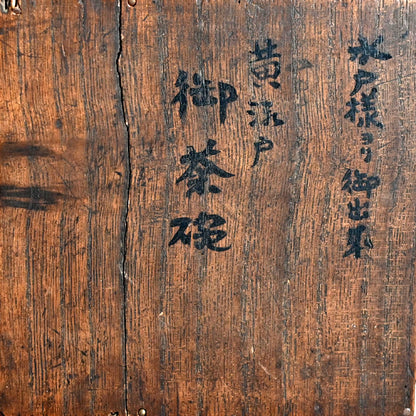 水戸様ヨリ御出来
黄瀬戸
御茶碗